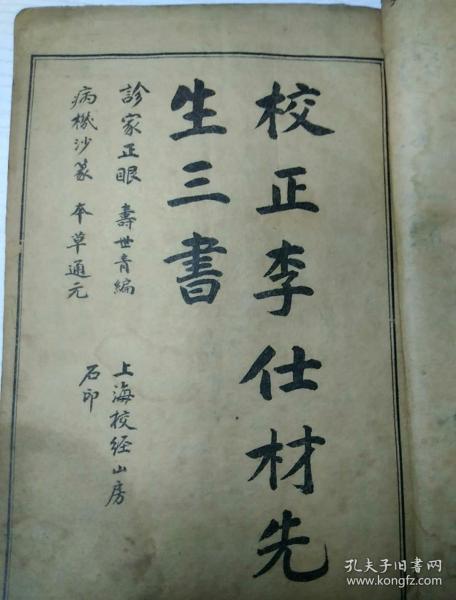 校正李仕材先
生三書
診家正眼 壽世青編
病機沙篆 本草通元
上海校經山房
石印
孔夫子旧书网
www.kongfz.com